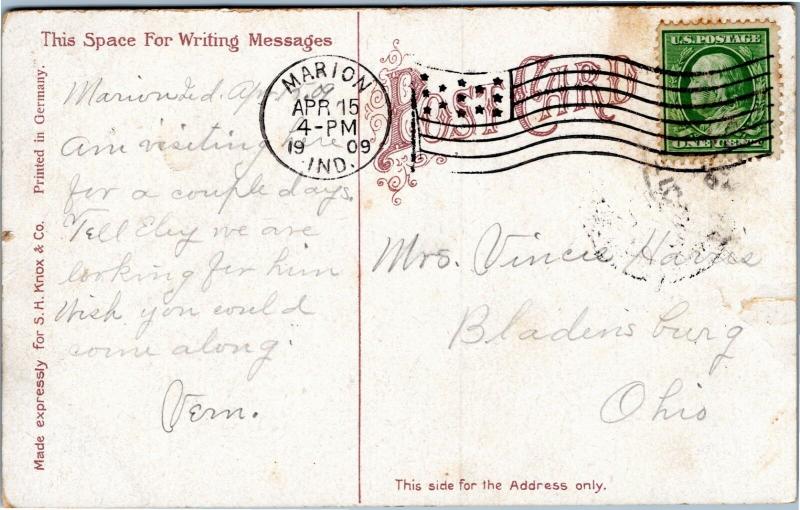 This Space For Writing Messages
POST CARD
U.S. POSTAGE
ONE CENT
MARION
APR 15
4-PM
19 09
IND.
Marion Ind. Apr 09
Am visiting here
for a couple days.
Tell Eley we are
looking for him
Wish you could
come along.
Vern.
Mrs. Vincie Harris
Bladensburg
Ohio
This side for the Address only.
Made expressly for S. H. Knox & Co. Printed in Germany.